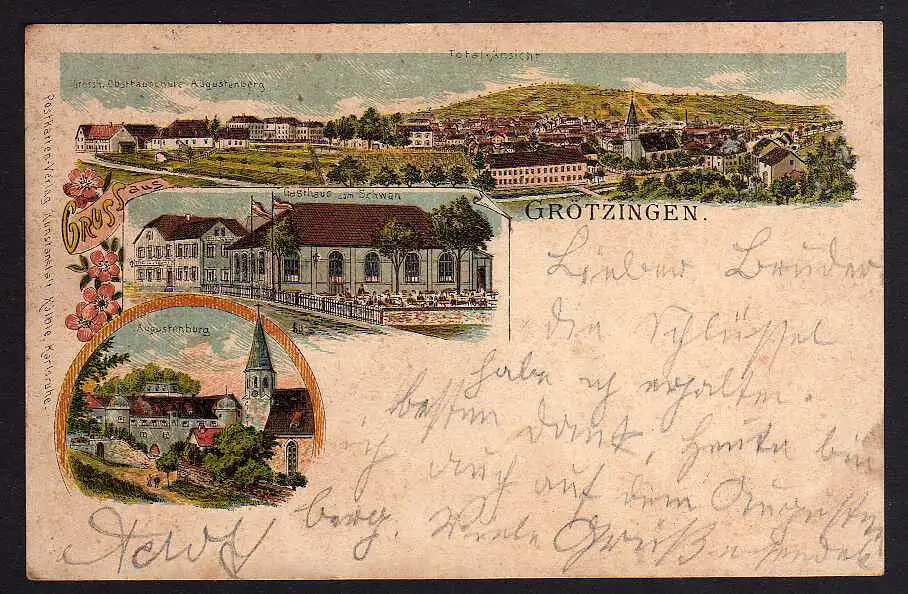 Totalansicht
Grossh. Obstbauschule Augustenberg
Gruss aus
GRÖTZINGEN.
Gasthaus zum Schwan
Augustenburg
Postkarten-Verlag Kunstanstalt
Karlsruhe.
Lieber Bruder
die Schlüssel
habe ich erhalten.
besten Dank, heute bin
ich auch auf dem Augusten
berg. Viele Grüße sendet
Adolf